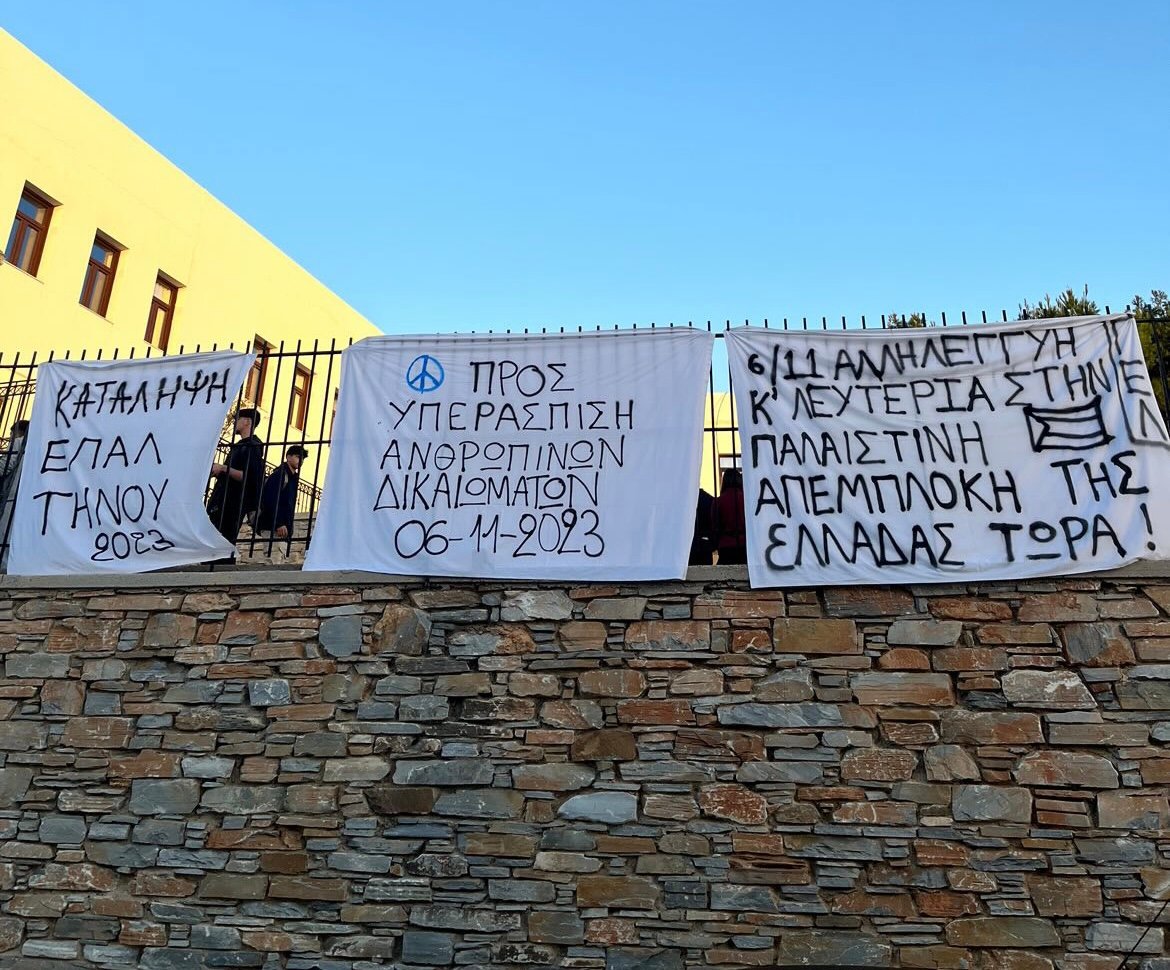 ΚΑΤΑΛΗΨΗ
ΕΠΑΛ
ΤΗΝΟΥ
2023
ΠΡΟΣ
ΥΠΕΡΑΣΠΙΣΗ
ΑΝΘΡΩΠΙΝΩΝ
ΔΙΚΑΙΩΜΑΤΩΝ
06-11-2023
6/11 ΑΛΛΗΛΕΓΓΥΗ
Κ' ΛΕΥΤΕΡΙΑ ΣΤΗΝ
ΠΑΛΑΙΣΤΙΝΗ
ΑΠΕΜΠΛΟΚΗ ΤΗΣ
ΕΛΛΑΔΑΣ ΤΩΡΑ!